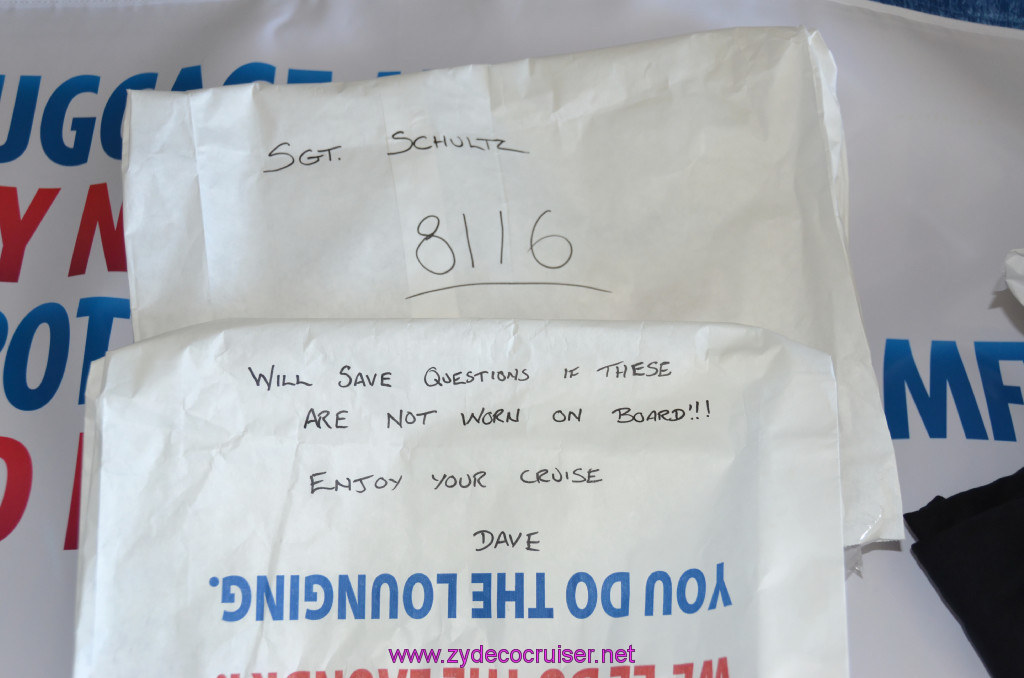 UGGAGE
SGT. SCHULTZ
Y
8116
POT
MF
WILL SAVE QUESTIONS IF THESE
ARE NOT WORN ON BOARD!!!
ENJOY YOUR CRUISE
DAVE
YOU DO THE LOUNGING.
WE'LL DO THE LAUNDRY.
www.zydecocruiser.net